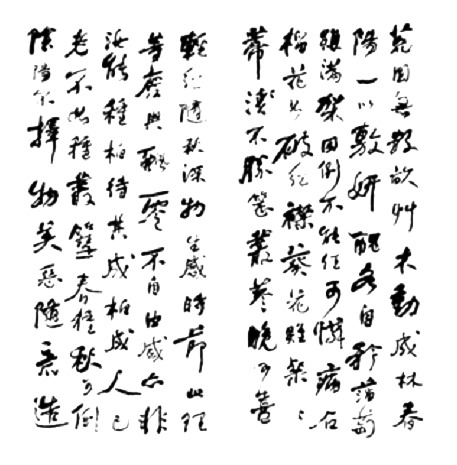 荒園無數畝艸木動成林春
陽一以敷妍醜各自矜蒲萄
雖滿架囷倒不能任可憐病石
榴花如破紅襟葵花雖粲〻
蒂淺不勝簪叢蓼晚可喜
輕紅隨秋深物生感時節此理
等廢興飄零不自由盛亦非
汝能種柏待其成柏成人已
老不如種叢篲春種秋可倒
陰陽不擇物美惡隨意造